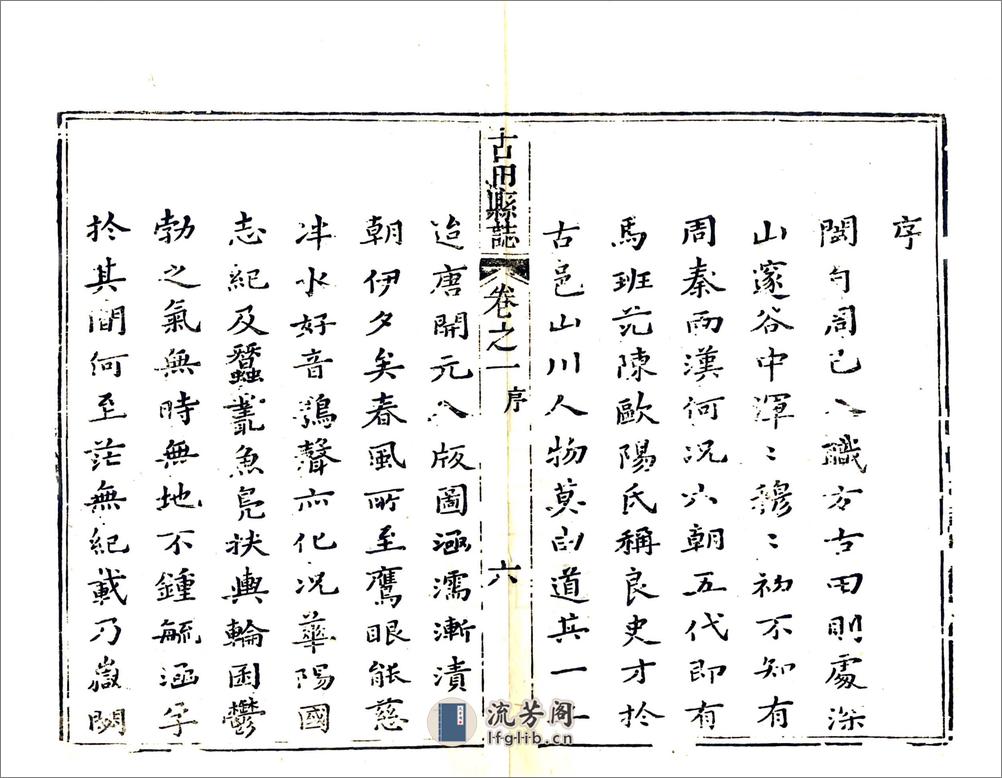 序
閩自周已入職方古田則處深
山邃谷中渾〻穆〻初不知有
周秦兩漢何况六朝五代即有
馬班范陳歐陽氏稱良史才扵
古邑山川人物莫由道其一二
古田縣誌
卷之一
序
六
迨唐開元入版圖涵濡漸漬
朝伊夕矣春風所至鷹眼能慈
泮水好音鴞聲亦化况華陽國
志紀及蠶叢魚鳧扶輿輪囷鬱
勃之氣無時無地不鍾毓涵孚
扵其間何至茫無紀載乃嶽闕
流芳阁
lfglib.cn